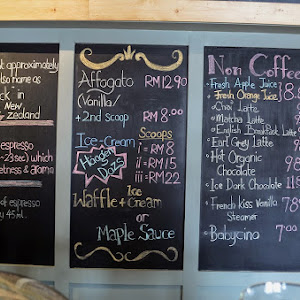 approximately
also name as
k in
New
Zealand
espresso
-23sec) which
sweetness & aroma
of espresso
45ml.
Affogato RM12.90
(Vanilla/
+2nd scoop RM 8.00
Ice-Cream Scoops
Haagen Dazs
i = RM 8
ii = RM 15
iii = RM22
Waffle + Ice Cream
or
Maple Sauce
Non Coffee
Fresh Apple Juice
Fresh Orange Juice
Chai Latte
Matcha Latte
English Breakfast Latte
Earl Grey Latte
Hot Organic
Chocolate
Ice Dark Chocolate
French Kiss Vanilla
Steamer
Babycino